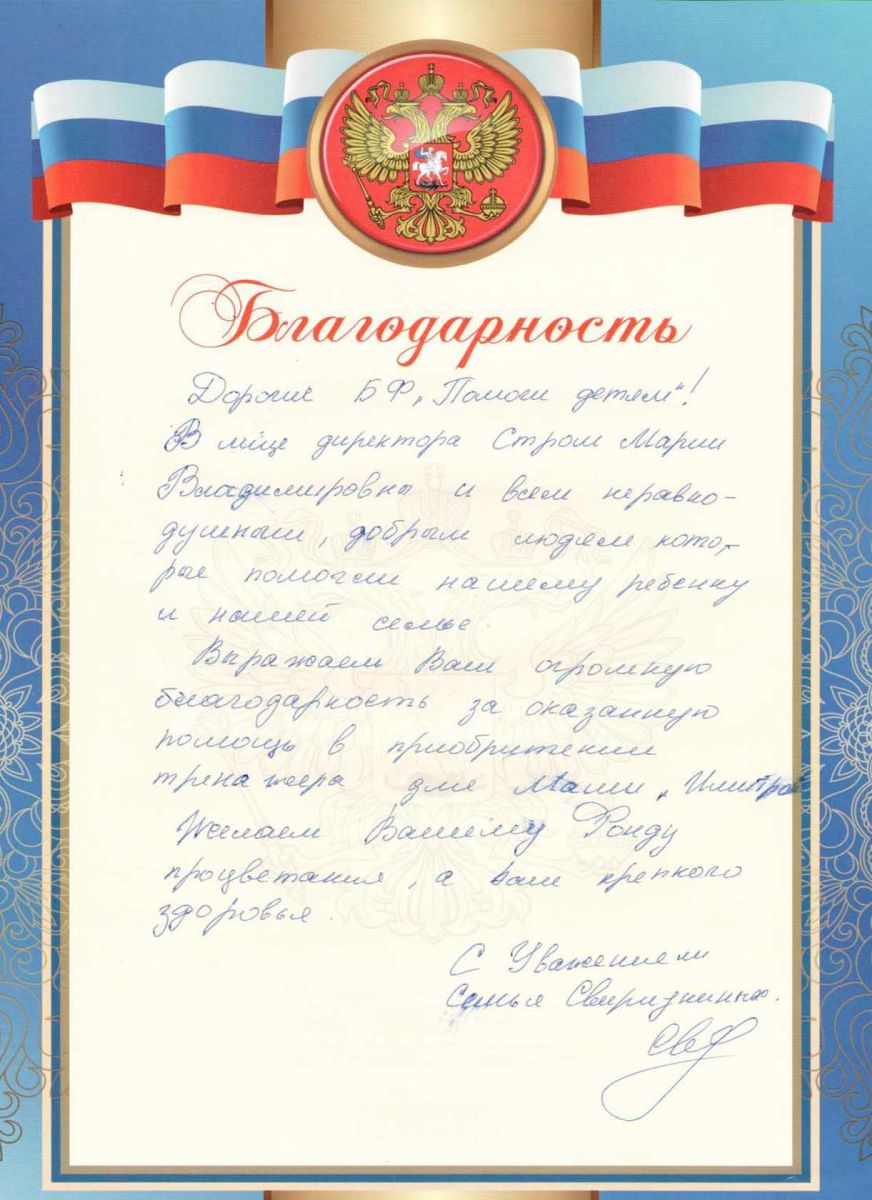 Благодарность
Дорогие БФ „Помоги детям"!
В лице директора Стром Марии
Владимировны и всем неравно-
душным, добрым людям кото-
рые помогли нашему ребенку
и нашей семье.
Выражаем Вам огромную
благодарность за оказанную
помощь в приобритении
тренажера для Маши „Имитрон
Желаем Вашему Фонду
процветания, а вам крепкого
здоровья.
С Уважением
Семья